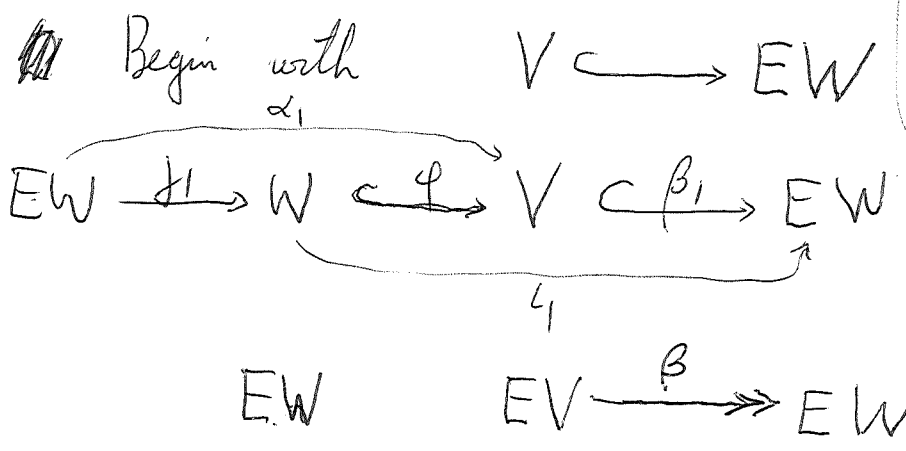 Begin with V ↪ EW
α₁
EW —j₁→ W ↪φ V ↪β₁ EW
i₁
β
EW EV ↠ EW